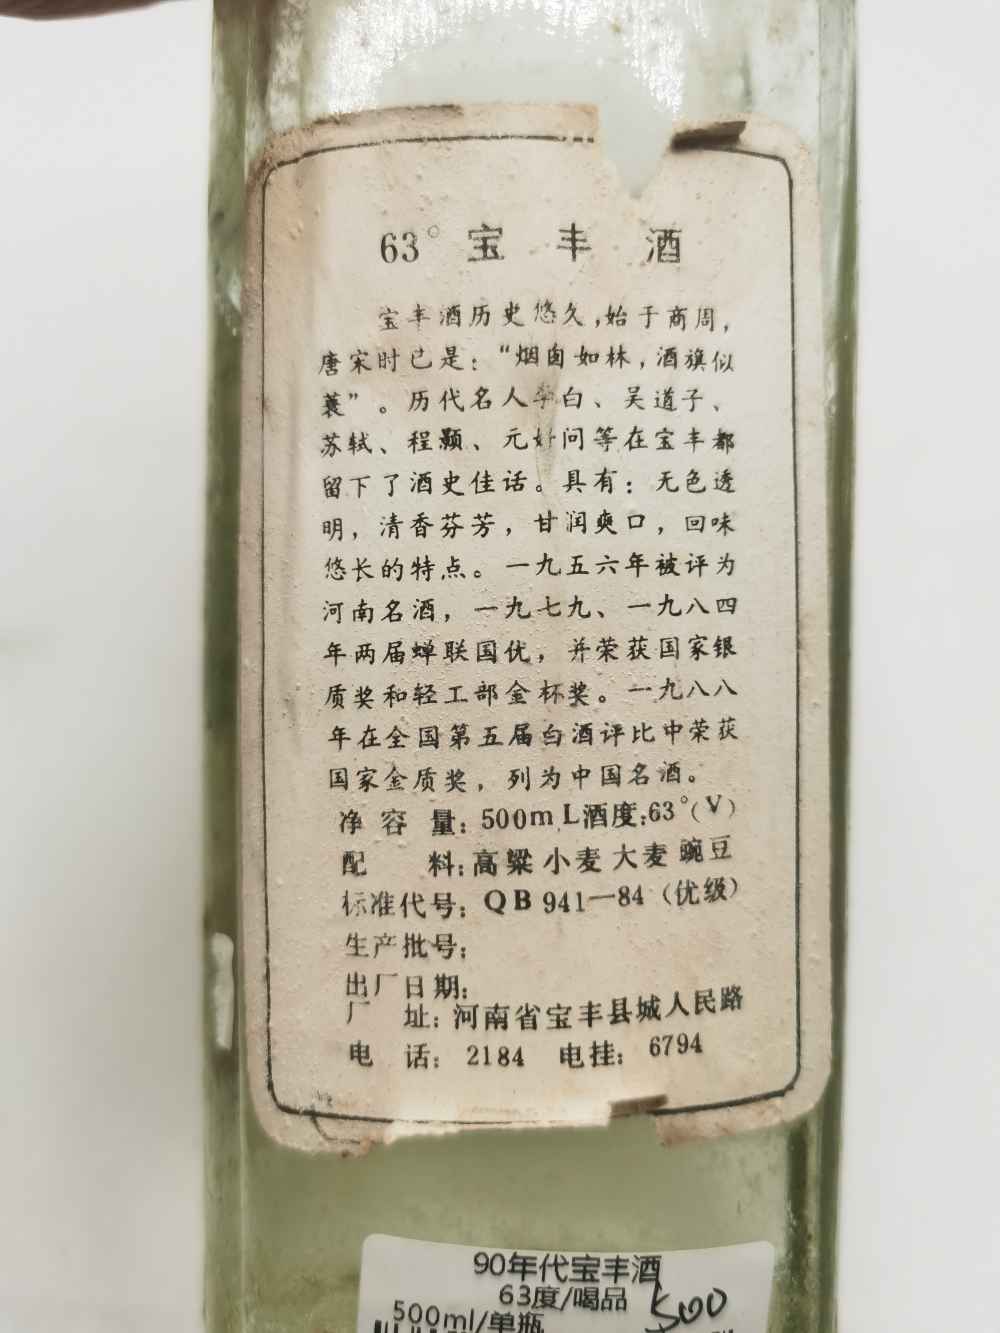 63° 宝丰酒
宝丰酒历史悠久,始于商周,
唐宋时已是:“烟囱如林,酒旗似
蓑”。历代名人李白、吴道子、
苏轼、程颢、元好问等在宝丰都
留下了酒史佳话。具有:无色透
明,清香芬芳,甘润爽口,回味
悠长的特点。一九五六年被评为
河南名酒,一九七九、一九八四
年两届蝉联国优,并荣获国家银
质奖和轻工部金杯奖。一九八八
年在全国第五届白酒评比中荣获
国家金质奖,列为中国名酒。
净容量:500mL酒度:63°(V)
配料:高粱小麦大麦豌豆
标准代号:QB941—84(优级)
生产批号:
出厂日期:
厂址:河南省宝丰县城人民路
电话:2184 电挂:6794
90年代宝丰酒
63度/喝品
500ml/单瓶
500